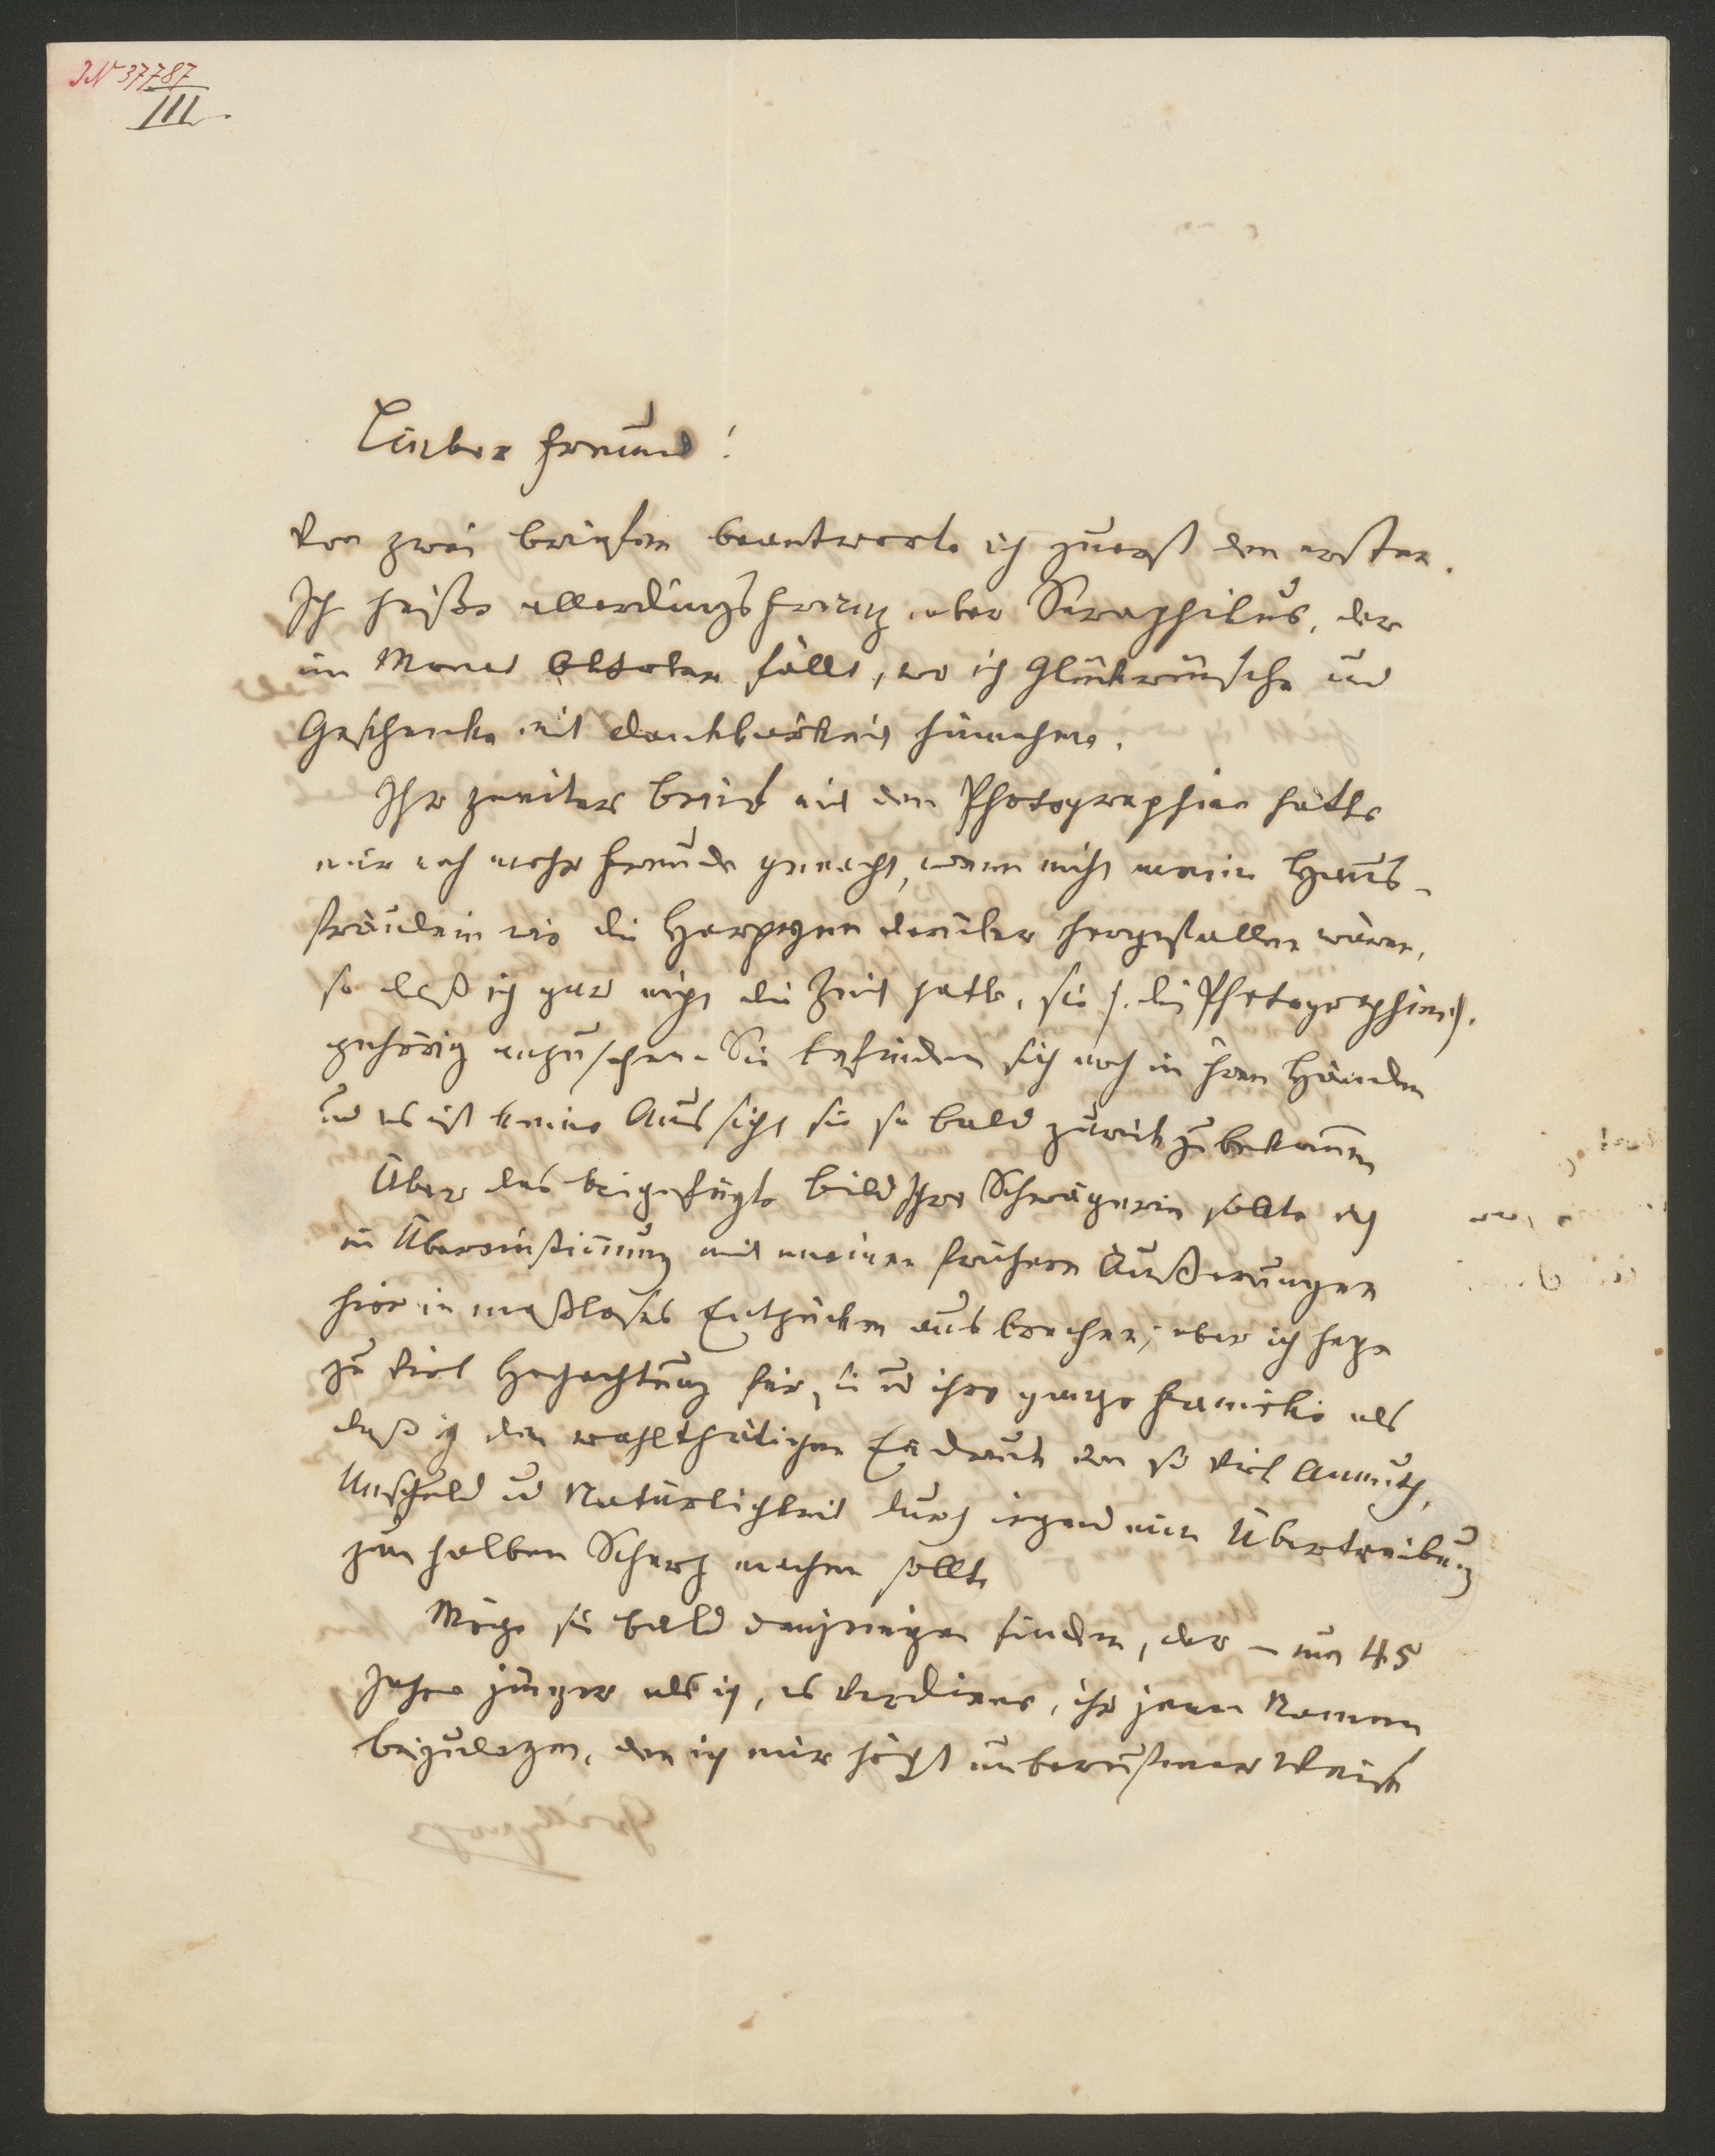 JN 37787
III
Lieber Freund!
Von zwei Briefen beantworte ich zuerst den ersten.
Ich heiße allerdings Franz aber Seraphikus, der
im Monat Oktober fällt, wo ich Glückwünsche und
Geschenke mit Dankbarkeit hinnehme.
Ihr zweiter Brief mit den Photographien hätte
mir noch mehr Freude gemacht, wenn nicht meine Haus-
fräulein wie die Harpyen darüber hergefallen wären,
so daß ich gar nicht die Zeit hatte, sie (die Photographien)
gehörig anzusehen. Sie befinden sich noch in ihren Händen
und es ist keine Aussicht sie so bald zurück zu bekommen
Über das beigefügte Bild Ihre Schwägerin sollte ich
in Übereinstimmung mit meinen frühern Äußerungen
hier in maßloses Entzücken ausbrechen; aber ich hege
zu viel Hochachtung für sie und ihre ganze Familie als
daß ich den wohlthätigen Eindruck von so viel Anmuth,
Unschuld und Natürlichkeit durch irgend eine Übertreibung
zum halben Scherz machen sollte
Möge sie bald denjenigen finden, der – um 45
Jahre jünger als ich, es verdiene, ihr jenen Namen
beizulegen, den ich mir höchst unberufener Weise